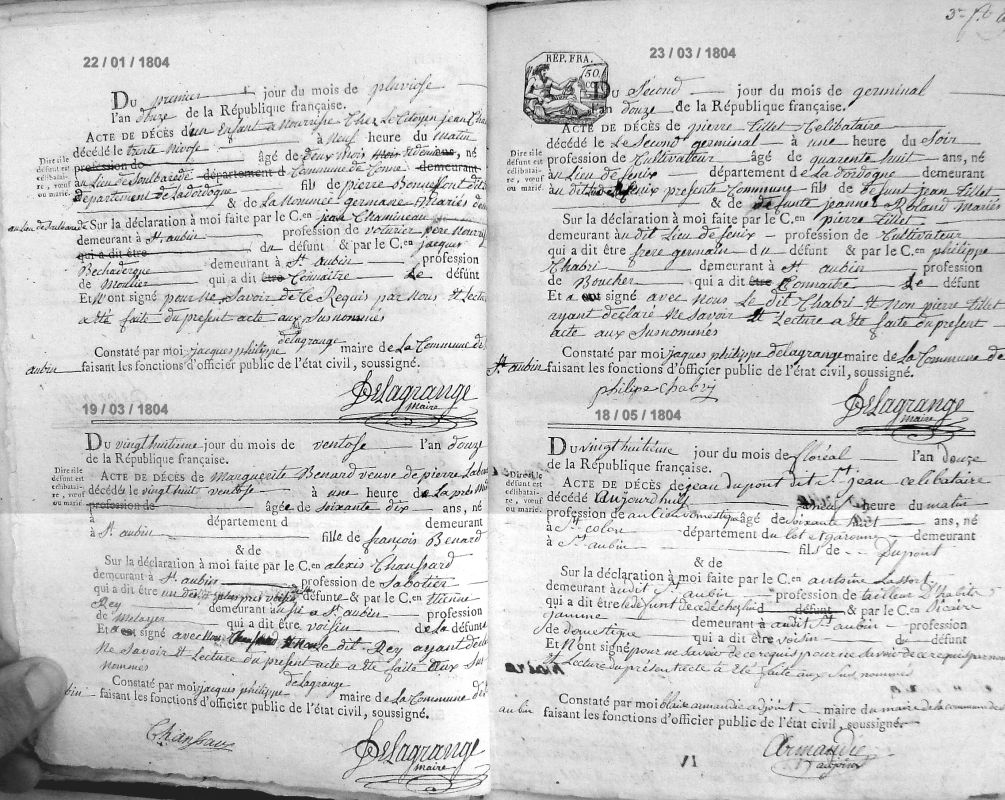 22 / 01 / 1804
Du premier jour du mois de pluviose
l'an douze de la République française.
ACTE DE DÉCÈS d'un Enfant a Nourrisse Chez Le Citoyen jean Cha
décédé le trente Nivose à Neuf heure du matin
Dire si le défunt est célibataire, veuf ou marié.
profession de âgé de deux mois, né
au Lieu de Soulbarede département d Commune de Conne demeurant
département de Ladordogne fils de pierre Bonnefont dit
& de La Nommée germane Mariés de
au lieu de Soulbarede Sur la déclaration à moi faite par le C.en jean Chamineau
demeurant à St. aubin profession de voturier pere Nourry
qui a dit être du défunt & par le C.en jacques
Bechadergue demeurant à St aubin profession
de Moulier qui a dit être Connaitre Le défunt
Et N'ont signé pour Ne Savoir de Ce Requis par Nous Et Lecture
a Eté faite du present acte aux Susnommés
Constaté par moi jacques philippe delagrange maire de La Commune de St
aubin faisant les fonctions d'officier public de l'état civil, soussigné.
Delagrange
maire
19 / 03 / 1804
Du vingt huitieme jour du mois de ventose l'an douze
de la République française.
ACTE DE DÉCÈS de Marguerite Benard veuve de pierre
décédée le vingt huit ventose à une heure de La près Midi
Dire si le défunt est célibataire, veuf ou marié.
profession de âgée de soixante dix ans, né
à département d demeurant
à St. aubin fille de françois Benard
& de
Sur la déclaration à moi faite par le C.en alexis Chaussard
demeurant à St. aubin profession de Sabotier
qui a dit être un des plus près voisin défunte & par le C.en Etienne
Rey demeurant aussi a St. aubin profession
de Metayer qui a dit être voisin de La défunte
Et a signé avec Nous Et Non Le dit Rey ayant déclaré
Ne Savoir Et Lecture du present acte a Eté faite aux Sus
nommés
Constaté par moi jacques philippe delagrange maire de La Commune de St
aubin faisant les fonctions d'officier public de l'état civil, soussigné.
Delagrange
maire
23 / 03 / 1804
RÉP. FRA.
50
Du Second jour du mois de germinal
l'an douze de la République française.
ACTE DE DÉCÈS de pierre Tillet Celibataire
décédé le Second germinal à une heure du Soir
Dire si le défunt est célibataire, veuf ou marié.
profession de Cultivateur âgé de quarente huit ans, né
au Lieu de fenix département de La dordogne demeurant
au dit Lieu de fenix presente Commune fils de defunt jean Tillet
& de defunte jeanne Roland Mariés
Sur la déclaration à moi faite par le C.en pierre Tillet
demeurant au dit Lieu de fenix profession de Cultivateur
qui a dit être frere germain du défunt & par le C.en philippe
Chabri demeurant à St aubin profession
de Boucher qui a dit être Connaitre Le défunt
Et a signé avec Nous Le dit Chabri Et Non pierre Tillet
ayant declaré Ne Savoir Et Lecture a Eté faite du present
acte aux Susnommés
Constaté par moi jaques philippe delagrange maire de la Commune de
St aubin faisant les fonctions d'officier public de l'état civil, soussigné.
philipe Chabry
Delagrange
maire
18 / 05 / 1804
Du vingt huitieme jour du mois de floréal l'an douze
de la République française.
ACTE DE DÉCÈS de jean dupont dit St. jean celibataire
décédé aujourdhuy heure du matin
Dire si le défunt est célibataire, veuf ou marié.
profession de ancien domestique âgé de soixante huit ans, né
à St. colon département du lot et garonne demeurant
à St. aubin fils de Dupont
& de
Sur la déclaration à moi faite par le C.en antoine Lassort
demeurant audit St. aubin profession de tailleur d'habits
qui a dit être d défunt & par le C.en
demeurant à audit St. aubin profession
de domestique qui a dit être voisin du défunt
Et N'ont signé pour ne savoir de ce requis
Et Lecture du présent acte a Eté faite aux Sus nommés
Constaté par moi blaise armandie adjoint maire du maire de la commune de St
aubin faisant les fonctions d'officier public de l'état civil, soussigné
Armandie
adjoint